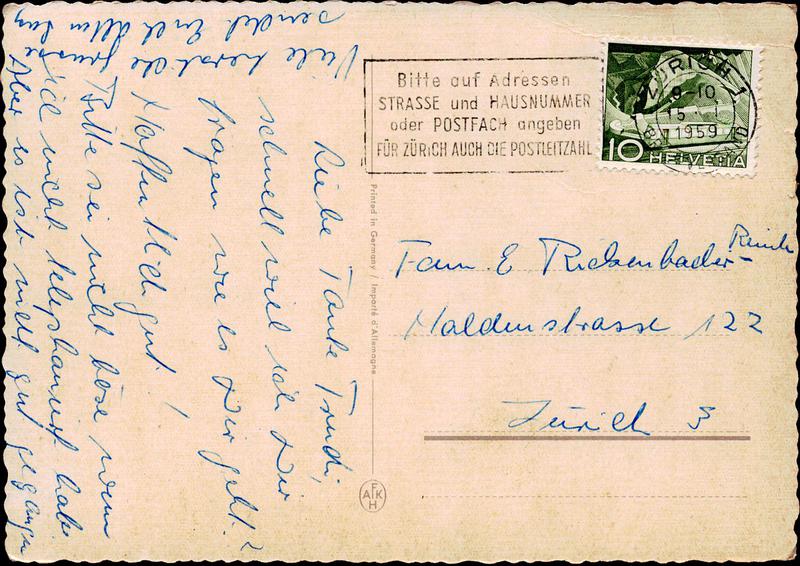 Bitte auf Adressen
STRASSE und HAUSNUMMER
oder POSTFACH angeben
FÜR ZÜRICH AUCH DIE POSTLEITZAHL
ZÜRICH 1
9-10
15
1959
10 HELVETIA
Liebe Tante Trudi,
schnell will ich Dir
fragen wie es Dir geht?
Hoffentlich gut!
Bitte sei nicht böse wenn
ich nicht telephoniert habe
Aber es ist nicht gut gegangen
Viele herzliche Grüsse
sendet Euch allen
Printed in Germany / Importé d'Allemagne
AFKH
Fam E Rickenbacher-
Maldenstrasse 122
Zürich 3